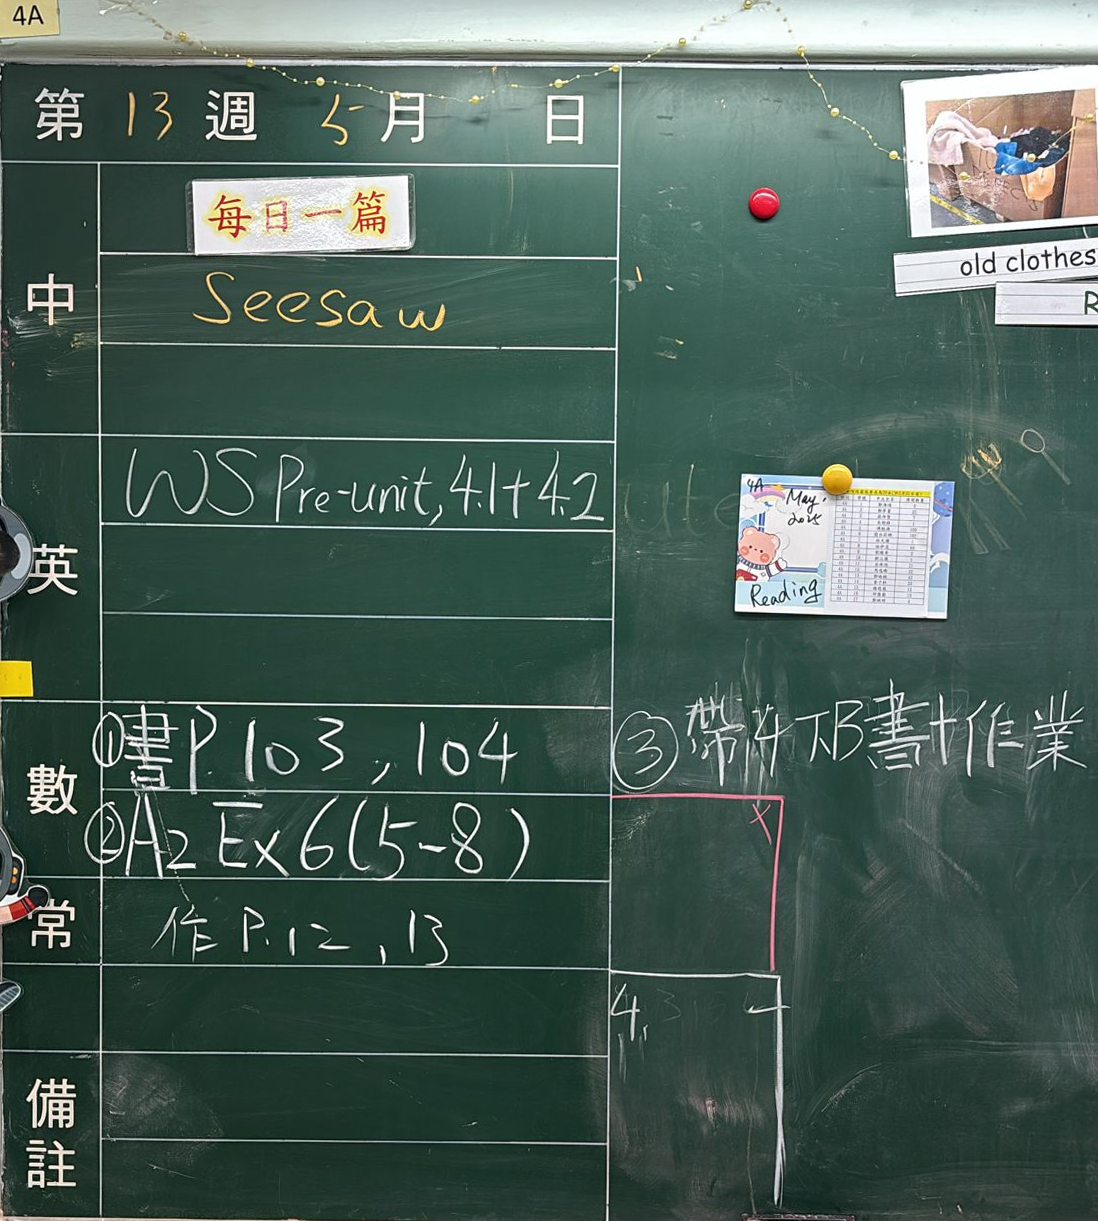 4A
第 13 週 5 月 日
中
每日一篇
Seesaw
英
WS Pre-unit, 4.1+4.2
數
①書P.103, 104
②A2 Ex 6(5-8)
③帶4下B書+作業
常
作 P.12, 13
備註
old clothes
R
4A
May.
2025
Reading
4.3